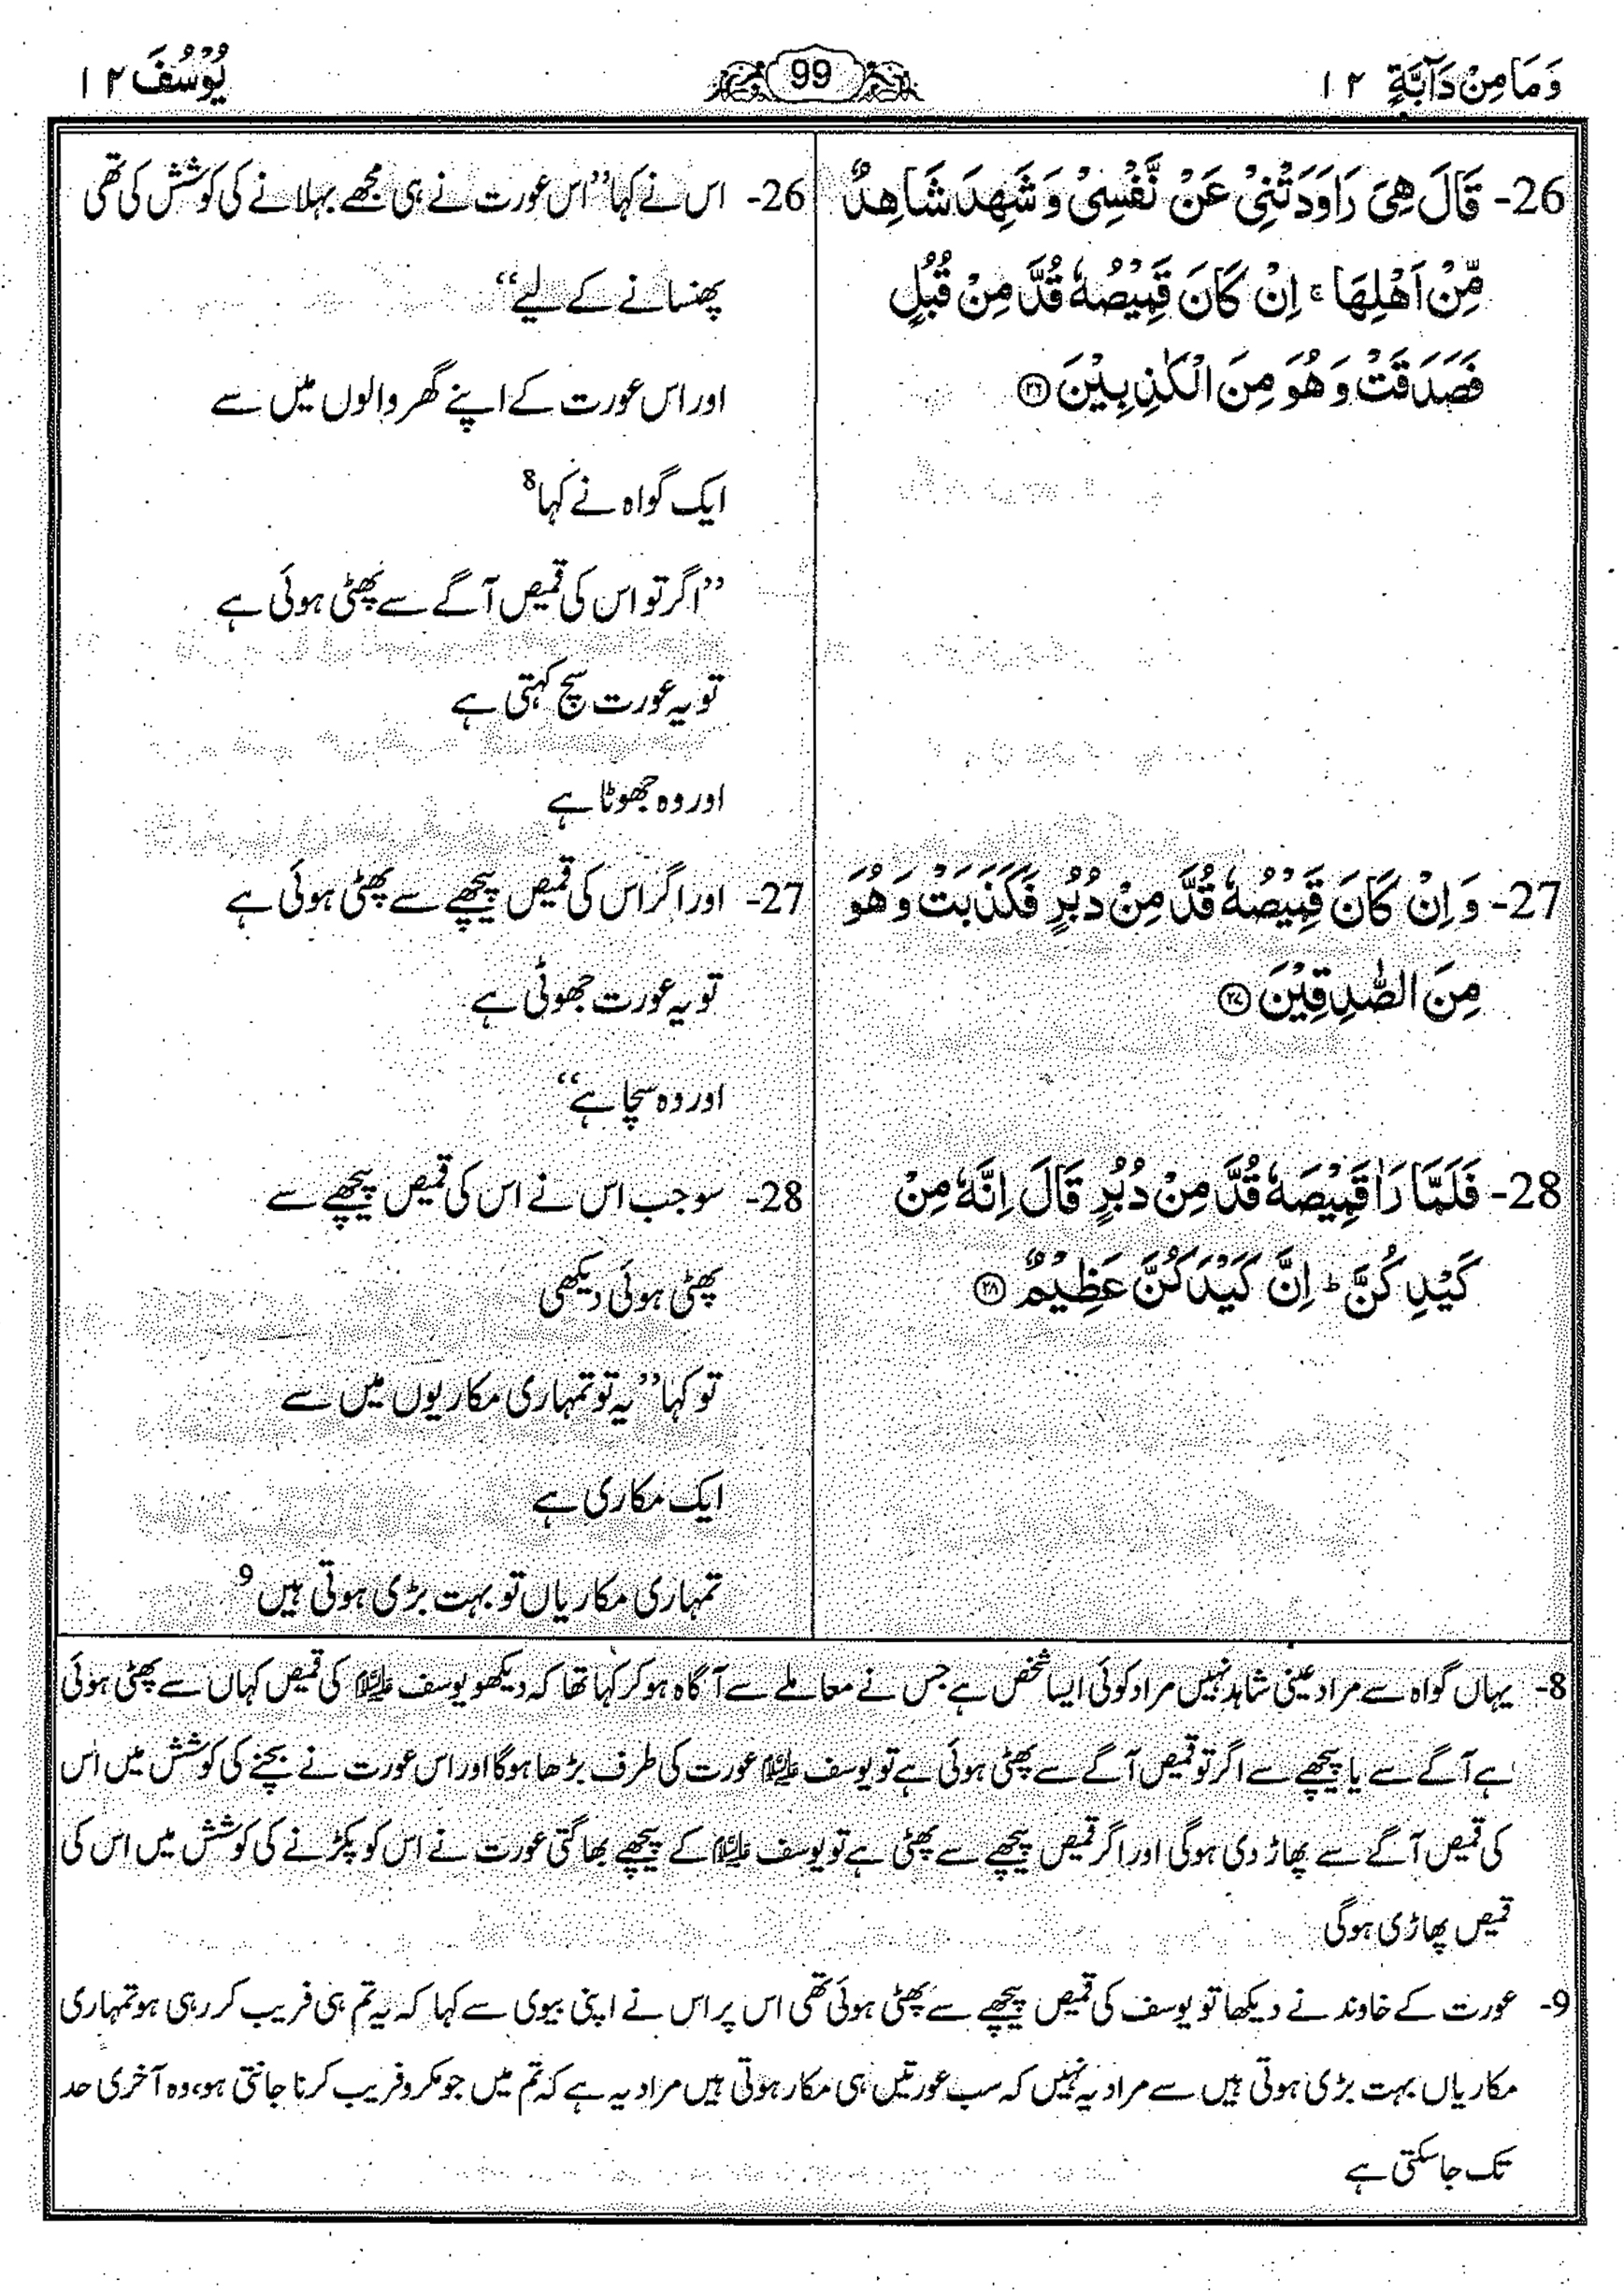 وَمَا مِنْ دَآبَّةٍ ۱۲
99
يُوْسُفَ ۱۲
26- قَالَ هِيَ رَاوَدَتْنِيْ عَنْ نَّفْسِيْ وَ شَهِدَ شَاهِدٌ
مِّنْ اَهْلِهَا ۚ اِنْ كَانَ قَمِيْصُهٗ قُدَّ مِنْ قُبُلٍ
فَصَدَقَتْ وَ هُوَ مِنَ الْكٰذِبِيْنَ ۲۶
27- وَ اِنْ كَانَ قَمِيْصُهٗ قُدَّ مِنْ دُبُرٍ فَكَذَبَتْ وَ هُوَ
مِنَ الصّٰدِقِيْنَ ۲۷
28- فَلَمَّا رَاٰ قَمِيْصَهٗ قُدَّ مِنْ دُبُرٍ قَالَ اِنَّهٗ مِنْ
كَيْدِكُنَّ ؕ اِنَّ كَيْدَكُنَّ عَظِيْمٌ ۲۸
26- اس نے کہا ”اس عورت نے ہی مجھے بہلانے کی کوشش کی تھی
پھنسانے کے لیے“
اور اس عورت کے اپنے گھر والوں میں سے
ایک گواہ نے کہا8
”اگر تو اس کی قمیص آگے سے پھٹی ہوئی ہے
تو یہ عورت سچ کہتی ہے
اور وہ جھوٹا ہے
27- اور اگر اس کی قمیص پیچھے سے پھٹی ہوئی ہے
تو یہ عورت جھوٹی ہے
اور وہ سچا ہے“
28- سو جب اس نے اس کی قمیص پیچھے سے
پھٹی ہوئی دیکھی
تو کہا ”یہ تو تمہاری مکاریوں میں سے
ایک مکاری ہے
تمہاری مکاریاں تو بہت بڑی ہوتی ہیں9
8- یہاں گواہ سے مراد عینی شاہد نہیں مراد کوئی ایسا شخص ہے جس نے معاملے سے آگاہ ہو کر کہا تھا کہ دیکھو یوسف علیہ السلام کی قمیص کہاں سے پھٹی ہوئی
ہے آگے سے یا پیچھے سے اگر تو قمیص آگے سے پھٹی ہوئی ہے تو یوسف علیہ السلام عورت کی طرف بڑھا ہوگا اور اس عورت نے بچنے کی کوشش میں اس
کی قمیص آگے سے پھاڑ دی ہوگی اور اگر قمیص پیچھے سے پھٹی ہے تو یوسف علیہ السلام کے پیچھے بھاگتی عورت نے اس کو پکڑنے کی کوشش میں اس کی
قمیص پھاڑی ہوگی
9- عورت کے خاوند نے دیکھا تو یوسف کی قمیص پیچھے سے پھٹی ہوئی تھی اس پر اس نے اپنی بیوی سے کہا کہ یہ تم ہی فریب کر رہی ہو تمہاری
مکاریاں بہت بڑی ہوتی ہیں سے مراد یہ نہیں کہ سب عورتیں ہی مکار ہوتی ہیں مراد یہ ہے کہ تم میں جو مکر و فریب کرنا جانتی ہو، وہ آخری حد
تک جا سکتی ہے